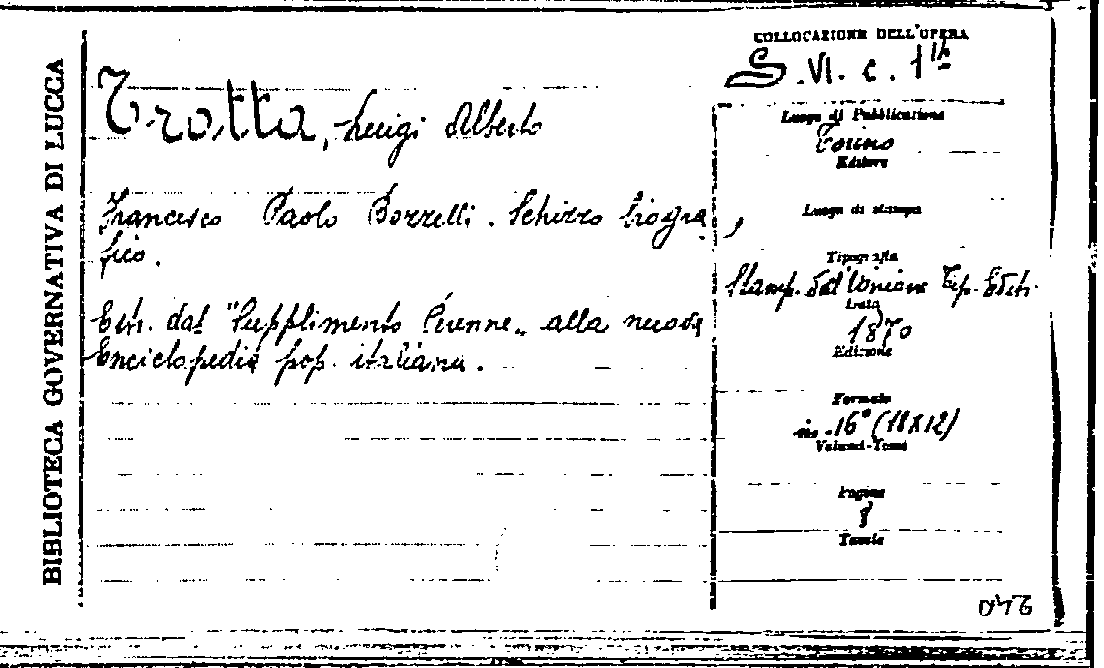 BIBLIOTECA GOVERNATIVA DI LUCCA
COLLOCAZIONE DELL'OPERA
S.VI. c. 1
Trotta, Luigi Alberto
Francesco Paolo Borrelli. Schizzo biogra
fico.
Estr. dal "Supplimento Perenne„ alla nuova
Enciclopedia pop. italiana.
Luogo di Pubblicazione
Torino
Editore
Luogo di stampa
Tipografia
Stamp. dell'Unione Tip. Editr.
Data
1870
Edizione
Formato
in-16° (18X12)
Volumi-Tomi
Pagine
8
Tavole